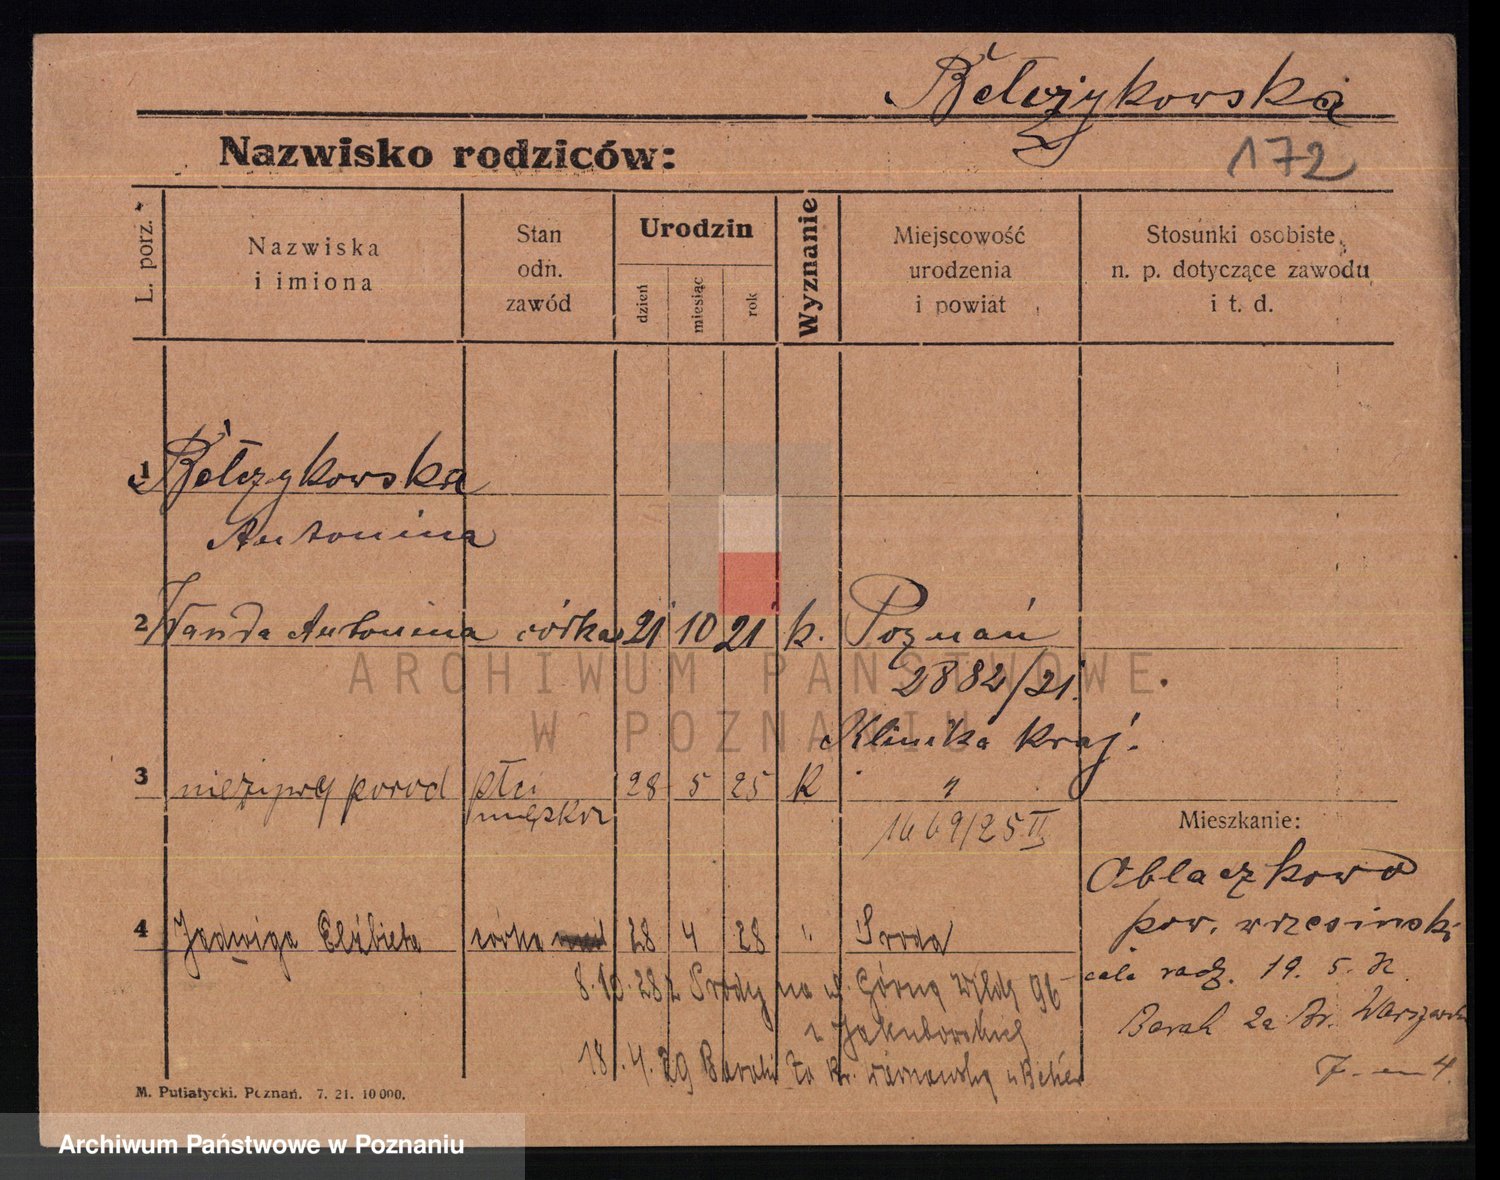 Bełczykowska
Nazwisko rodziców:
172
L. porz.
Nazwiska
i imiona
Stan
odn.
zawód
Urodzin
dzień
miesiąc
rok
Wyznanie
Miejscowość
urodzenia
i powiat
Stosunki osobiste,
n. p. dotyczące zawodu
i t. d.
1 Bełczykowska
Antonina
2 Wanda Antonina córka 21 10 21 k. Poznań
2882/21.
Klinika Kraj.
3 nieżywy porod płci 28 5 25 k "
męzkie
1669/25 II
Mieszkanie:
Oblaczkowo
pow. wrzesinski
4 Jadwiga Elżbieta córka 28 4 28 " Sroda
cała radz. 19. 5.
8.10.28 z Srody na ul. Górną Wildę 96
Barak 2a Br. Warszawska
z Jakubowskiej
18.4.29 Baraki
7. 4.
M. Putiatycki. Poznań. 7. 21. 10000.
ARCHIWUM PAŃSTWOWE
W POZNANIU
Archiwum Państwowe w Poznaniu